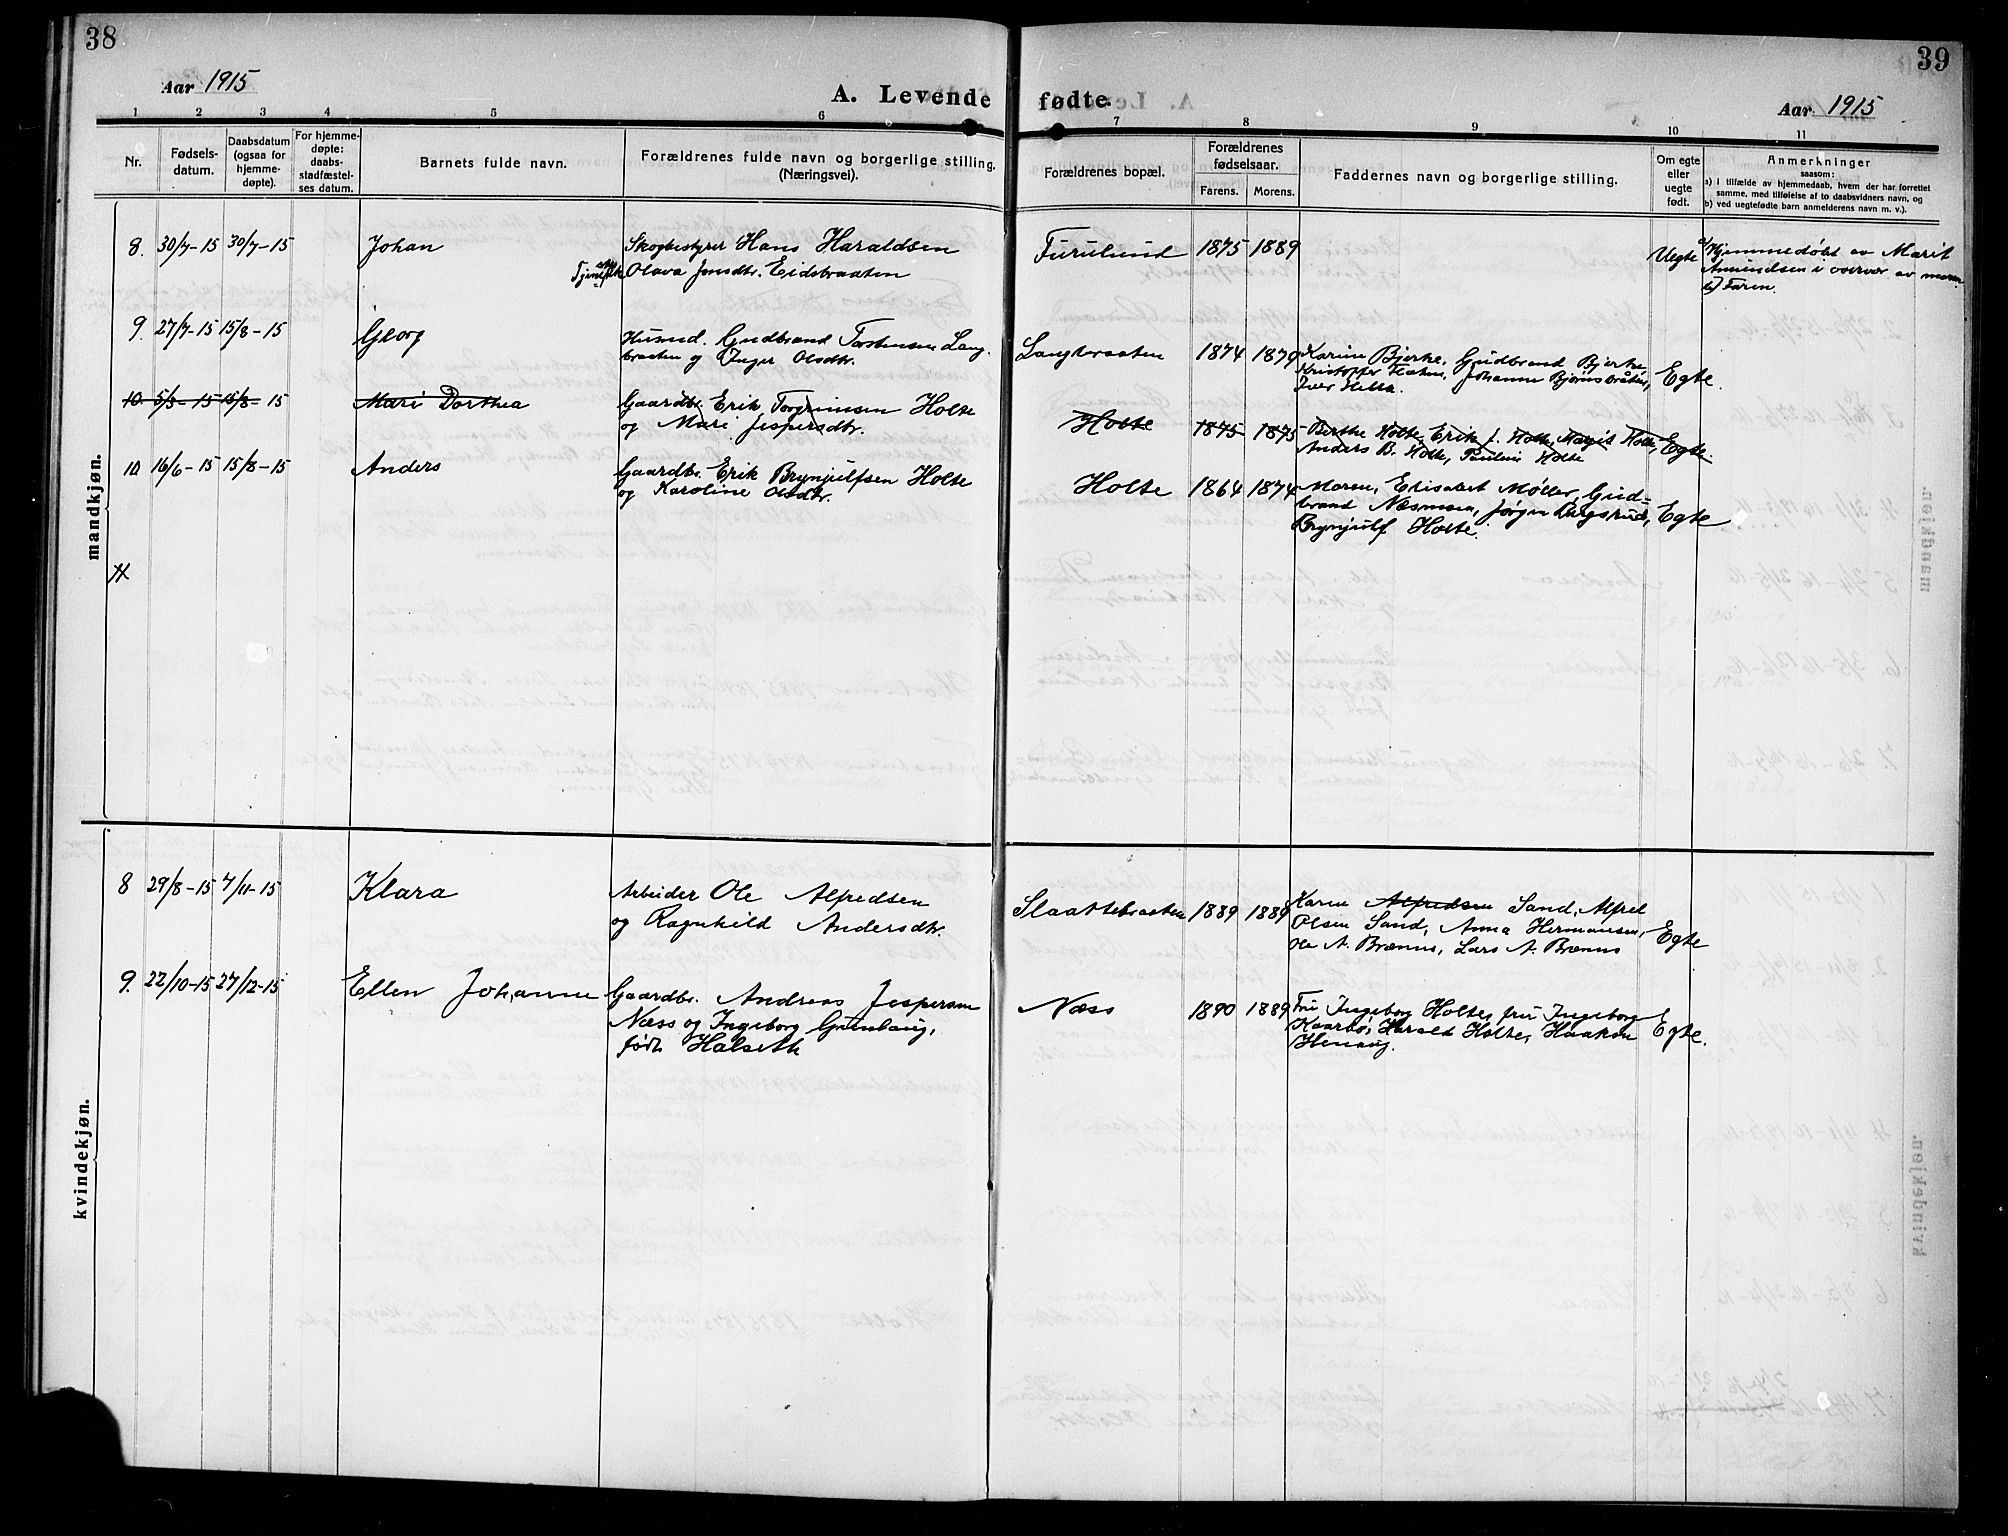 38
39
Aar 1915
A. Levende fødte.
Aar 1915
1 2 3 4 5 6 7 8 9 10 11
Nr.
Fødsels-
datum.
Daabsdatum
(ogsaa for
hjemme-
døpte).
For hjemme-
døpte:
daabs-
stadfæstel-
ses datum.
Barnets fulde navn.
Forældrenes fulde navn og borgerlige stilling.
(Næringsvei).
Forældrenes bopæl.
Forældrenes
fødselsaar.
Farens. Morens.
Faddernes navn og borgerlige stilling.
Om egte
eller
uegte
født.
Anmerkninger
saasom:
a) i tilfælde av hjemmedaab, hvem der har forrettet
samme, med tilføielse af to daabsvidners navn, og
b) ved uegtefødte barn anmelderens navn m. v.).
mandkjøn.
8. 30/7-15 30/7-15 Johan
Skogbestyrer Hans Haraldsen
Olava Jensdtr. Eidsbraaten
Furulund 1875 1889
Uegte
a) Hjemmedøbt av Marit
Amundsen i overvær av moren
b) Faren.
9. 27/7-15 15/8-15 Georg
Husmd. Gudbrand Torstensen Lang-
braaten og Inger Olsdtr.
Langbraaten 1874 1879
Karine Bjerke, Gudbrand Bjerke,
Kristoffer Johanne Bjørnsbråten,
Iver
Egte.
10. 5/3-15 15/8-15 Mari Dorthea
Gaardbr. Erik Torgrimsen Holte
og Mari Jespersdtr.
Holte 1875 1875
Berthe Holte, Erik J. Holte, Margit Holte,
Anders B. Holte, Pauline Holte
Egte.
10 16/6-15 15/8-15 Anders
Gaardbr. Erik Brynjulfsen Holte
og Karoline Olsdtr.
Holte 1864 1874
Moren, Elisabet Møller, Gud-
brand Næsmoen, Jørgen Bergsrud,
Brynjulf Holte.
Egte
kvindekjøn.
8 29/8-15 7/11-15 Klara
Arbeider Ole Alfredsen
og Ragnhild Andersdtr.
Slaattebraaten 1889 1889
Karen Alfredsen Sand, Alfred
Olsen Sand, Anna Hermansen,
Ole A. Brænns, Lars A. Brænns
Egte
9. 22/10-15 27/12-15 Ellen Johanne
Gaardbr. Andreas Jespersen
Næss og Ingeborg Gunlaug,
født Halseth
Næss 1890 1889
Fru Ingeborg Holte, fru Ingeborg
Kaarbø, Harald Holte, Haakon
Henaug.
Egte.